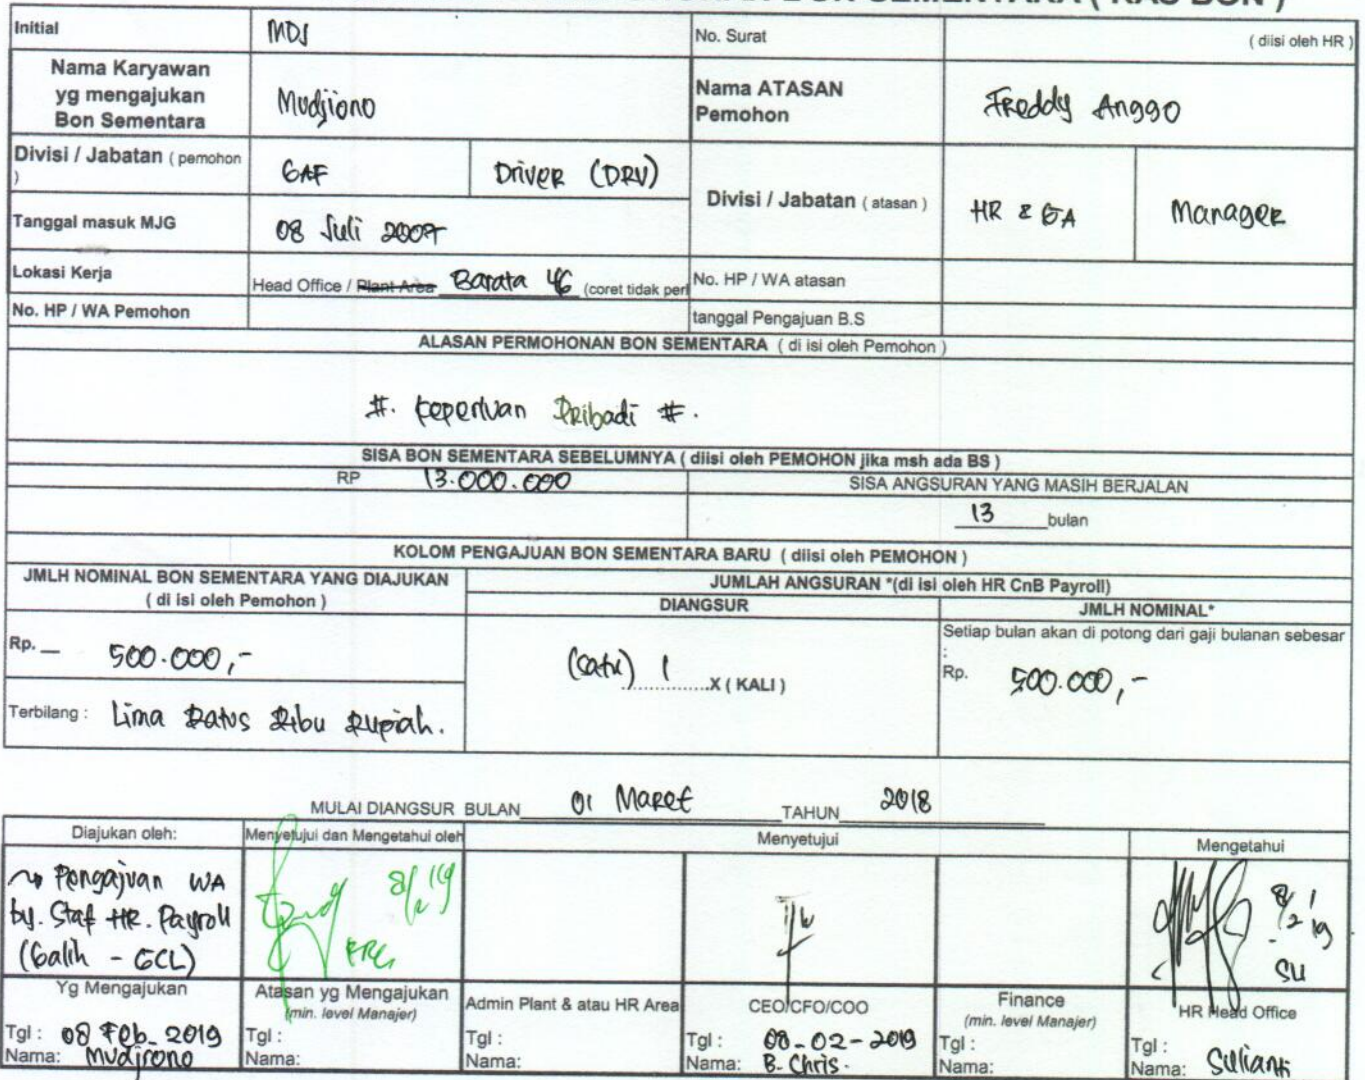 SEMENTARA ( KAS BON )
Initial MDJ No. Surat ( diisi oleh HR )
Nama Karyawan yg mengajukan Bon Sementara Mudjiono Nama ATASAN Pemohon Freddy Anggo
Divisi / Jabatan ( pemohon ) GAF Driver (DRV) Divisi / Jabatan ( atasan ) HR & GA Manager
Tanggal masuk MJG 08 Juli 2007
Lokasi Kerja Head Office / Plant Area Barata 46 (coret tidak perl No. HP / WA atasan
No. HP / WA Pemohon tanggal Pengajuan B.S
ALASAN PERMOHONAN BON SEMENTARA ( di isi oleh Pemohon )
#. Keperluan Pribadi #.
SISA BON SEMENTARA SEBELUMNYA ( diisi oleh PEMOHON jika msh ada BS )
RP 13.000.000 SISA ANGSURAN YANG MASIH BERJALAN
13 bulan
KOLOM PENGAJUAN BON SEMENTARA BARU ( diisi oleh PEMOHON )
JMLH NOMINAL BON SEMENTARA YANG DIAJUKAN JUMLAH ANGSURAN *(di isi oleh HR CnB Payroll)
( di isi oleh Pemohon ) DIANGSUR JMLH NOMINAL*
Setiap bulan akan di potong dari gaji bulanan sebesar :
Rp. 500.000,- (satu) 1 ...............X ( KALI ) Rp. 500.000,-
Terbilang : Lima Ratus Ribu Rupiah.
MULAI DIANGSUR BULAN 01 Maret TAHUN 2018
Diajukan oleh: Menyetujui dan Mengetahui oleh Menyetujui Mengetahui
Pengajuan WA
by. Staf HR. Payroll 8/2 19 8/2 19
(Galih - GCL) SU
Yg Mengajukan Atasan yg Mengajukan (min. level Manajer) Admin Plant & atau HR Area CEO/CFO/COO Finance (min. level Manajer) HR Head Office
Tgl : 08 Feb_ 2019 Tgl : Tgl : Tgl : 08-02-2019 Tgl : Tgl :
Nama: Mudjiono Nama: Nama: Nama: B. Chris. Nama: Nama: Sulianti